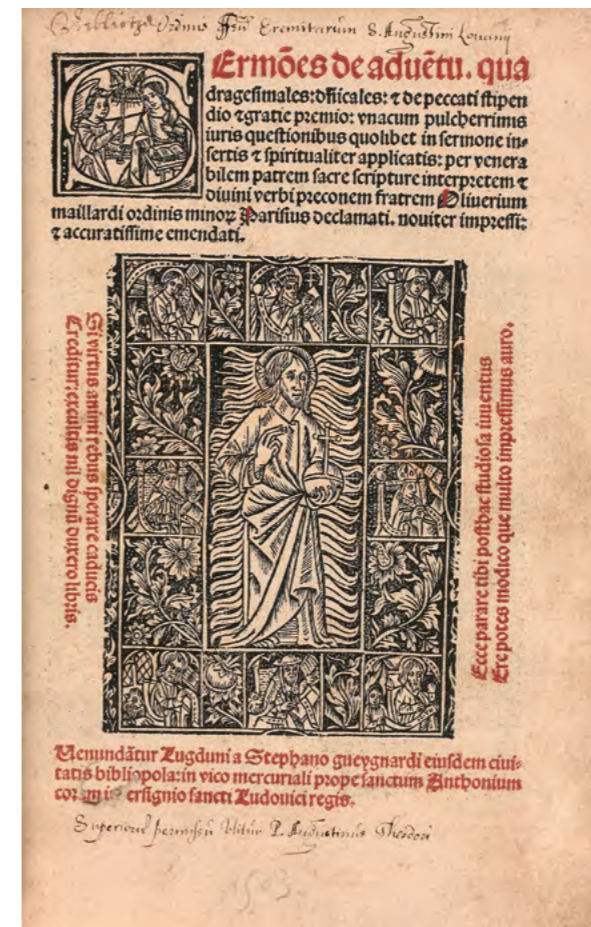 Bibliothecae Ordinis ffrū Eremitarum S. Augustini Lovanij
Sermōes de aduētu. qua
dragesimales: dn̄icales: ⁊ de peccati stipen
dio ⁊ gratie premio: vnacum pulcherrimis
iuris questionibus quolibet in sermone in-
sertis ⁊ spiritualiter applicatis: per venera
bilem patrem sacre scripture interpretem ⁊
diuini verbi preconem fratrem Oliuerium
maillardi ordinis minoꝝ Parisius declamati. nouiter impressi:
⁊ accuratissime emendati.
Si virtus animi rebus sperare caducis
Creditur: excultis nil dignū duxero libris.
Ecce parare tibi posthac studiosa iuuentus
Ere potes modico que multo impressimus auro.
Uenundātur Lugduni a Stephano gueygnardi eiusdem ciui-
tatis bibliopola: in vico mercuriali prope sanctum Anthonium
sancti Ludouici regis.
Superiorū permissū Utitur P. Augustinus Theodori
1503.